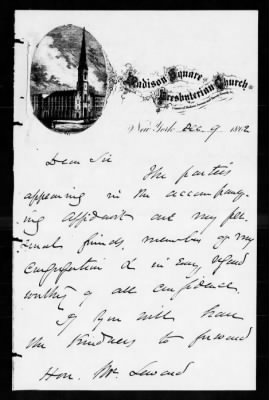 Madison Square
Presbyterian Church
New York Dec. 9 1862
Dear Sir
The parties
appearing in the accompany-
ing affidavit are my per-
sonal friends, members of my
congregation & in every regard
worthy of all confidence.
If you will have
the kindness to forward
Hon. Mr. Seward